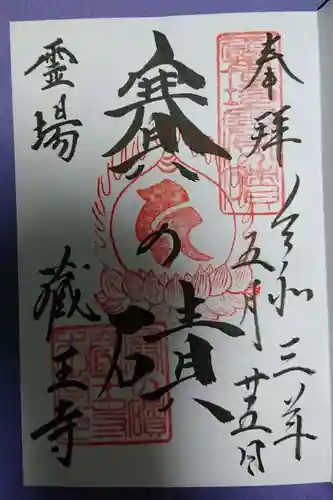 奉拝
令和三年
五月廿五日
賽の磧
霊場
蔵王寺